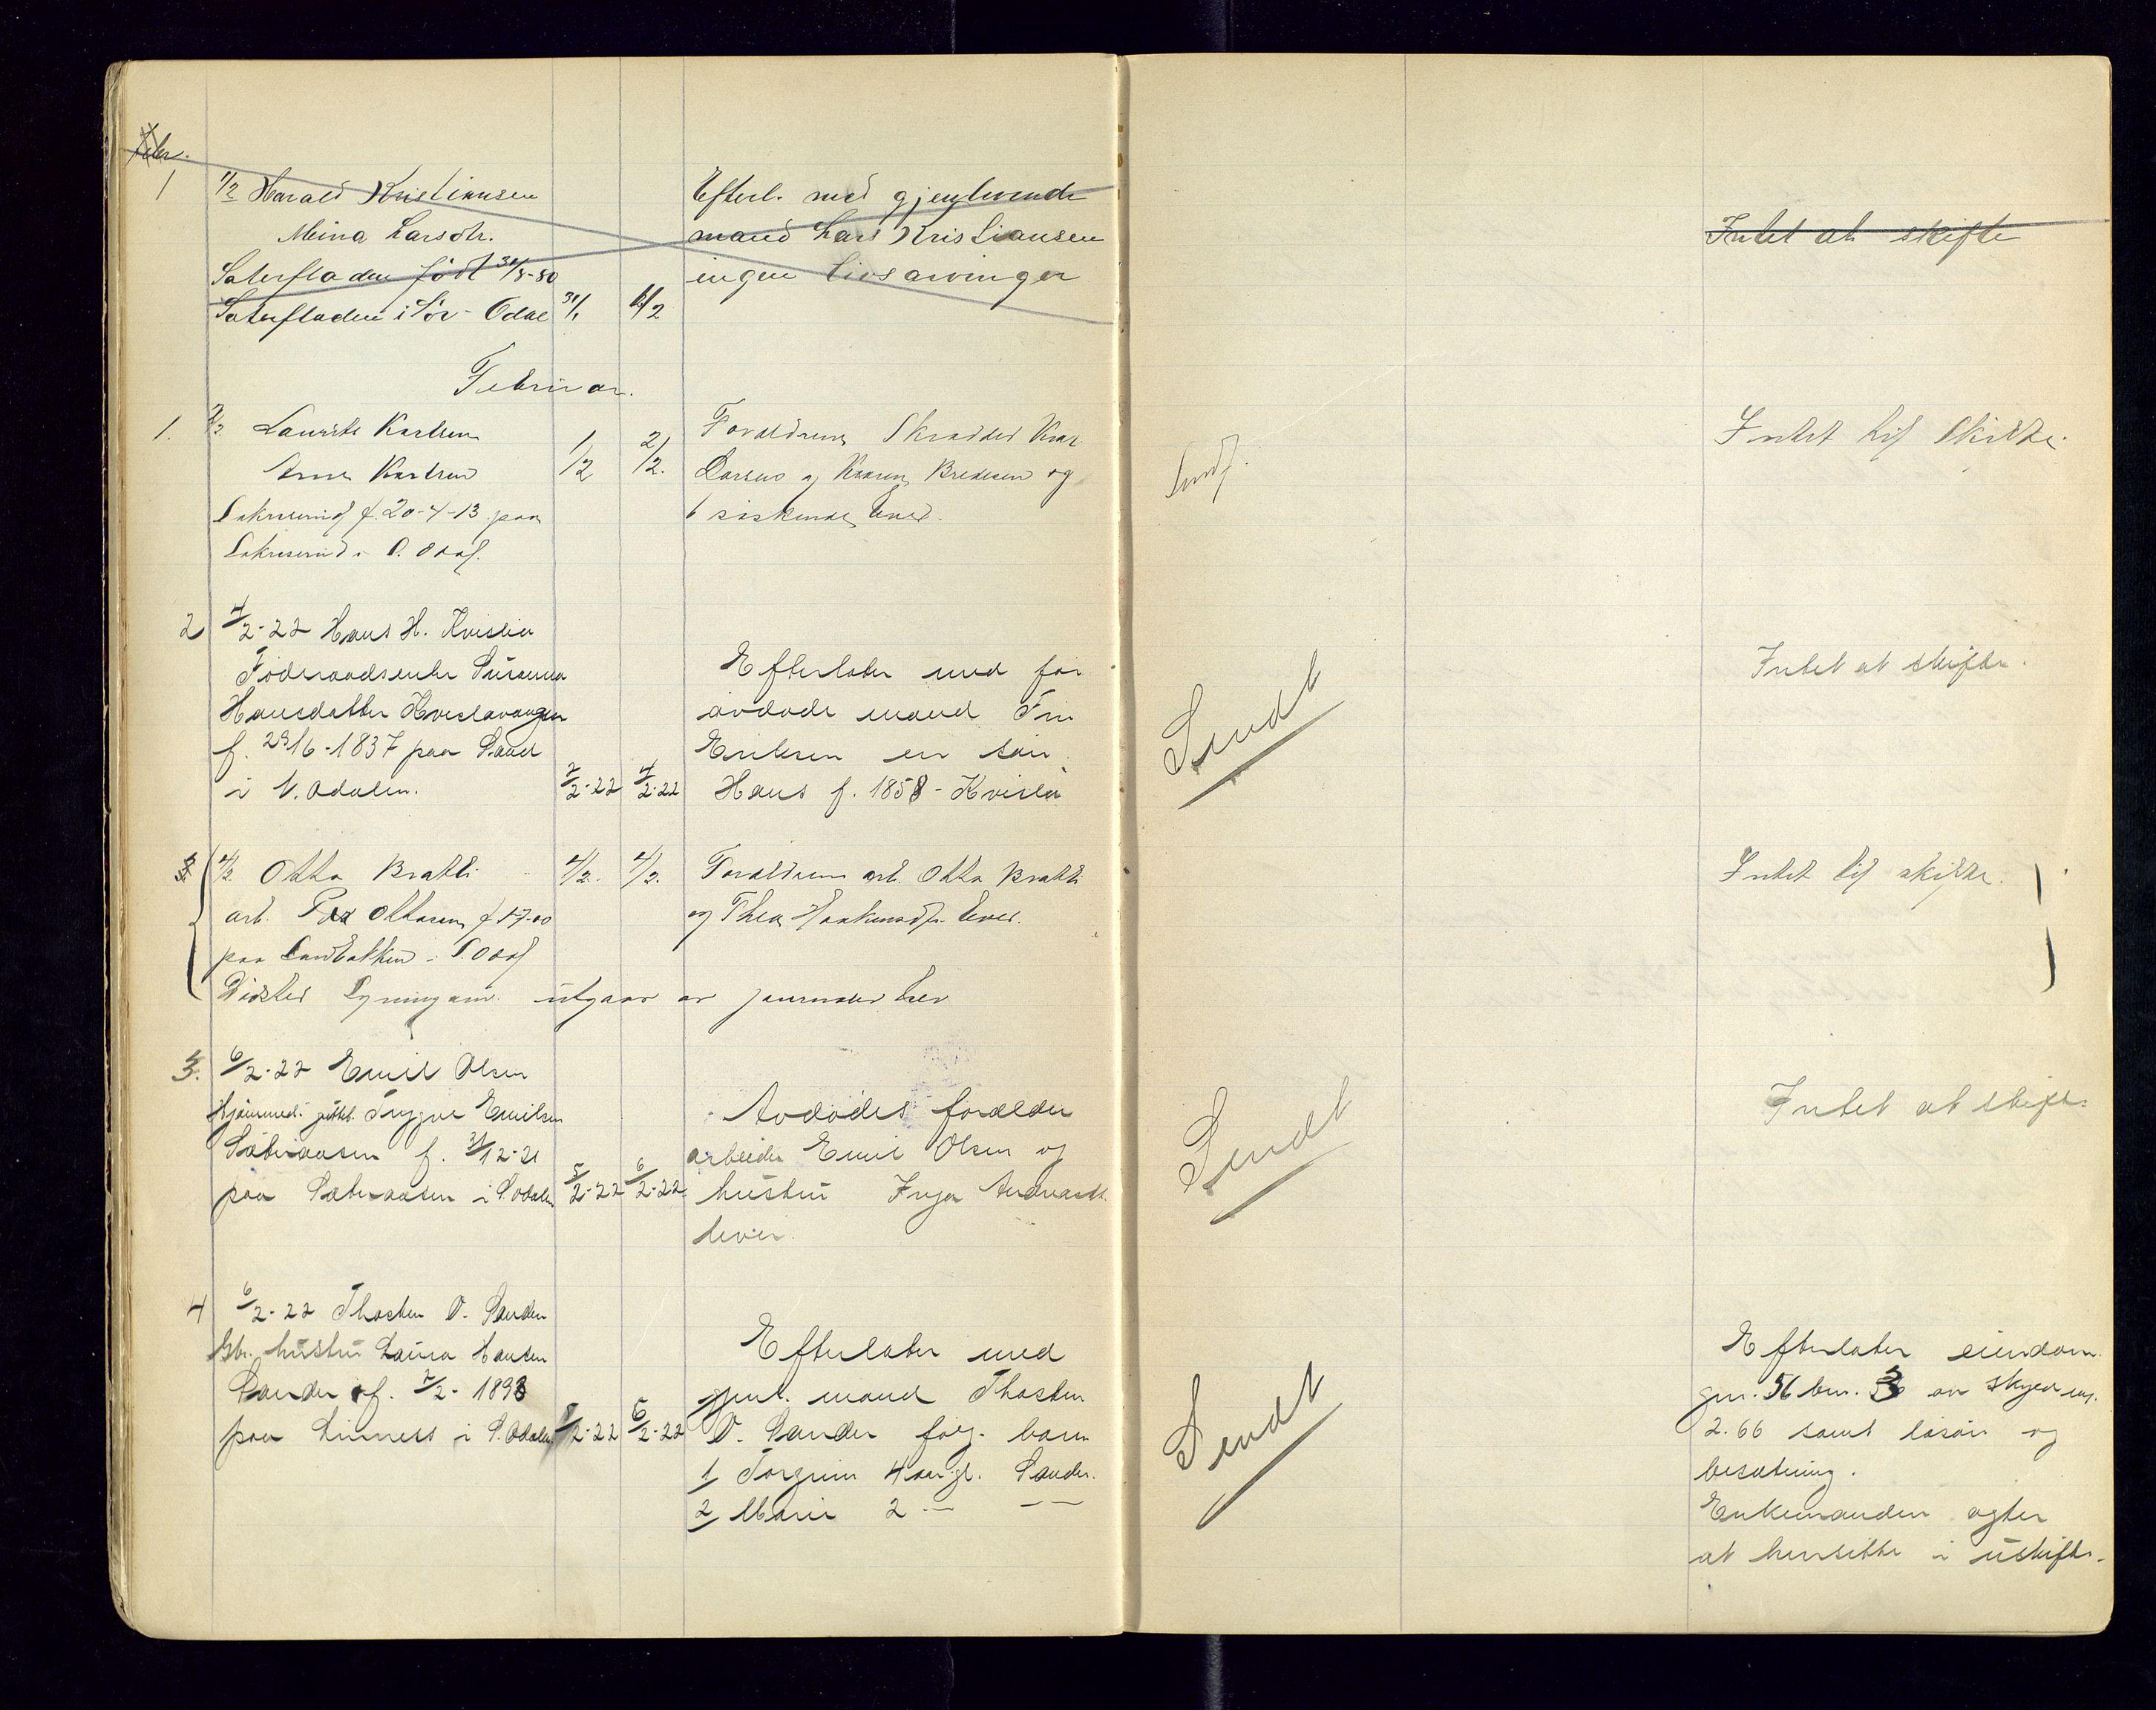 Febr.
1 1/2 Harald Kristiansen
Meina Larsdtr.
Saterfladen født 30/8-80
Saterfladen i Sör-Odal 31/1 1/2
Efterl. med gjenlevende
mand Lars Kristiansen
ingen livsarvinger
Intet at skifte
Februar.
1. 2/2. Laurits Karlsen
Arne Karlsen
f. 20-4-13 paa
i S. Odal.
1/2 2/2.
Foraldrene Skrædder Kar
Larsen og Karen Bredesen og
6 söskende lever.
Sendt.
Intet til Skifte.
2 4/2-22 Hans H. Kvislia
Föderaadsenke
Hansdatter
f. 29/6-1837 paa Sand
i N. Odalen.
2/2-22 4/2-22
Efterlater med for
avdøde mand
Eriksen en sön
Hans f. 1858 - Kvisla
Sendt
Intet at skifte.
3 4/2 Otto Bratli
arb. Per Ottosen f 1-7-00
paa Sandbakken i S. Odal
4/2. 4/2.
Foraldrene arb. Otto Bratli
og Thea Haakensdtr. lever.
Intet til skifte.
utgaar av journalen her
3. 6/2-22 Emil Olsen
Hjemmed. Trygve Emilsen
Sæteraasen f. 31/12-21
paa Sæteraasen i S Odalen
5/2-22 6/2-22
Avdødes forælder
arbeider Emil Olsen og
hustru Inga
lever.
Sendt
Intet at skifte
4 6/2-22 Thosten O. Sander
gbr. hustru Laura Hansen
Sander f. 7/2-1893
paa Linness i S. Odalen 5/2-22 6/2-22
Efterlater med
gjenl. mand Thosten
O. Sander følg. barn
1/ Torgrim 4 aar gl. Sander.
2/ Marie 2 — — —
Sendt
Efterlater eiendom
gnr. 56 bnr. 3 av skyld mrk.
2.66 samt løsøre og
besætning.
Enkemanden agter
at hensitte i uskifte.